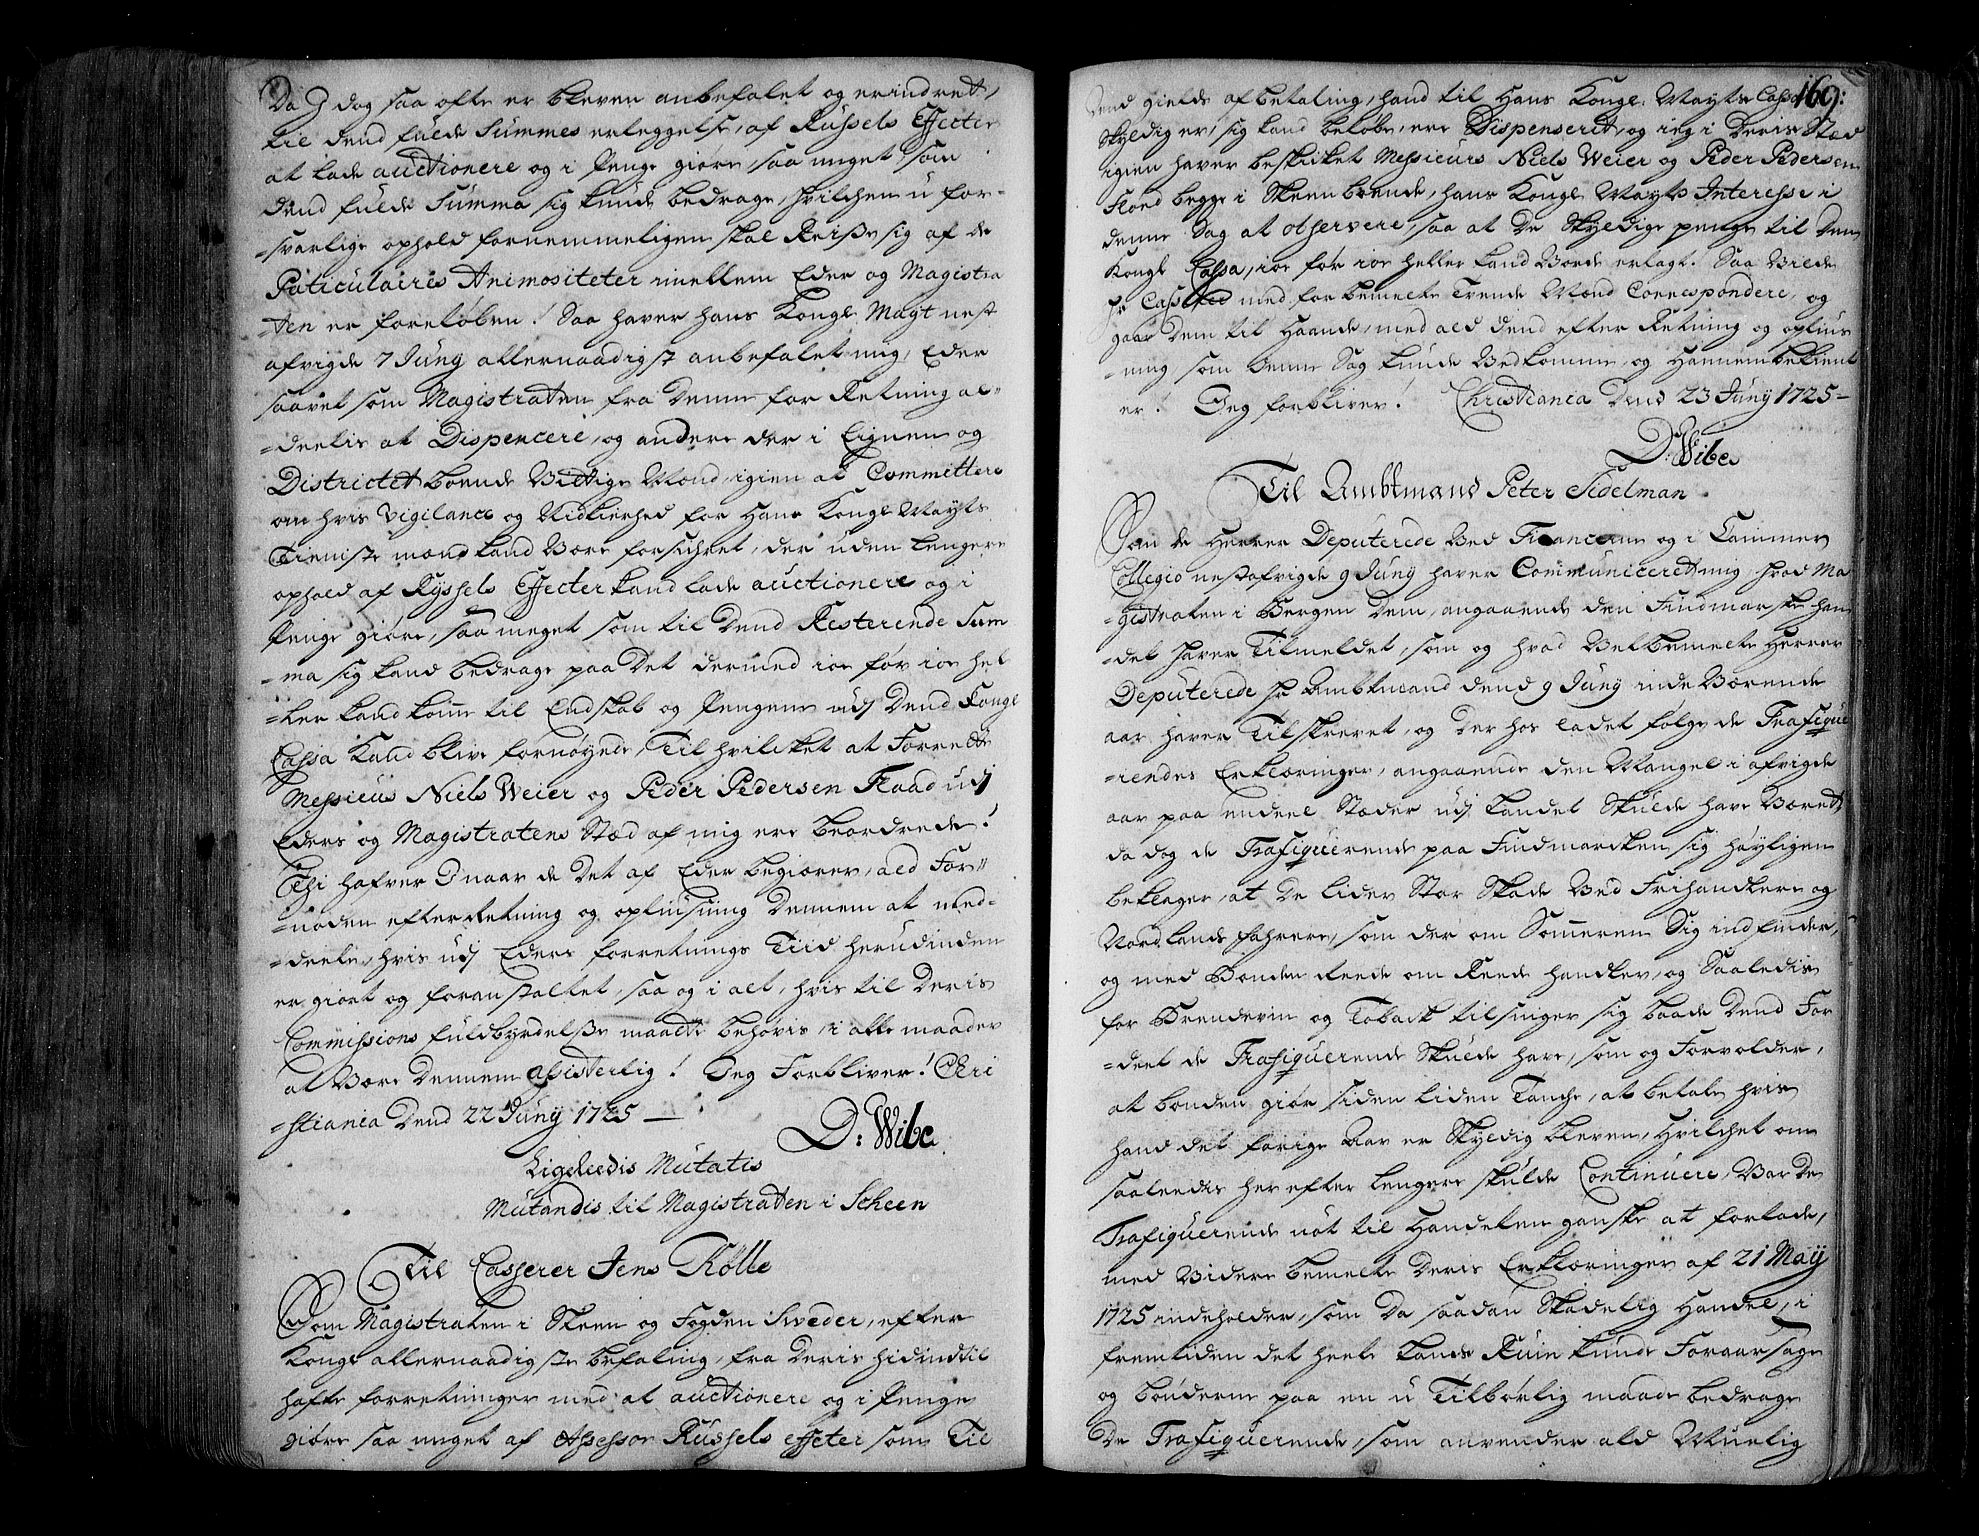 Da I dog saa ofte er bleven anbefalet og erindret,
til dend fulde Summes erleggelse, af Russels Effecter
at lade auctionere og i Penge giøre, saa meget som
dend fulde Summa sig kunde bedrage, hvilchen u-for-
=svarlige ophold fornemmeligen skal Reise sig af de
Paticulaires Animositeter imellem Eder og Magistra
=ten er foreløben! Saa haver Hans Kongl. Mayt nest
afvigte 7 Juny allernaadigst anbefalet mig, Eder
saavel som Magistraten fra denne for Retning al=
=deelis at Dispencere, og andere der i Eignen og
Districtet boende Vittige Mænd igien at Committere
om hvis Vigilance og Nidkierhed for Hans Kongl. Mayts
Tieniste mand kand Være forsichret, der uden lengere
ophold af Ryssels Effecter kand lade auctionere og i
Penge giøre, saa meget som til Dend Resterende Sum
=ma sig kand bedrage paa det dermed ior før ior hel
=ler kand komme til Endskab og Pengene udj Dend Kongl
Cassa kand blive fornøyede, Til hvilcket at Forrette
Messieurs Niels Weier og Peder Pedersen Flood udj
Eders og Magistratens Stæd af mig ere beordrede!
Thi hafver I naar de det af Eder begiærer, ald For=
=nøden efterRetning og opliusning dennem at med=
=deele, hvis udj Eders forretnings Tiid herudinden
er giort og foranstaltet, saa og i alt, hvis til deris
Commissions fuldbyrdelse maatte behøvis, i alle maader
at Være dennem assisterlig! Jeg Forbliver! Chri
=stiania Dend 22 Juny 1725 —
D: Wibe.
Ligeleedis Mutatis
Mutandis til Magistraten i Scheen
Til Casserer Jens Kølle
Som Magistraten i Skeen og Fogden Sweder, efter
Kongl. allernaadigste befaling, fra deris hidindtil
hafte forretninger med at auctionere og i Penge
giøre saa meget af Assessor Russels effeter som Til
dend gields afbetaling, hand til Hans Kongl. Mayts Cassa 169:
skyldig er, sig kand beløbe, ere Dispenseret, og ieg i deris Sted
igien haver beskicket Messieurs Niels Weier og Peder Pedersen
Flood begge i Skeen boende, Hans Kongl. Mayts Interesse i
denne Sag at observere, saa at de skyldige penge til dend
Kongl. Cassa, ior før ior heller kand Vorde erlagt! Saa Vilde
Hr Casserer med forbemelte Tvende Mænd Correspondere, og
gaar dem til Haande, med ald dend efter Retning og oplius
=ning som denne Sag kunde Vedkomme, og Hannem bekient
er! Jeg forbliver! Christiania Dend 23 Juny 1725 —
D: Wibe
Til Ambtmand Peter Sidelman
Som de Herrer Deputerede Ved Financerne og i Cammer
Collegio nestafvigte 9 Juny haver Communiceret mig, hvad Ma
=gistraten i Bergen dem, angaaende den Findmarske han
=del haver Tilmeldet, som og hvad Velbemelte Herrer
Deputerede Hr Ambtmand dend 9 Juny inde Værende
aar haver Tilskrevet, og der hos ladet følge de Trafique
=rendes Erklæringer, angaaende den Mangel i afvigte
aar paa endeel Stæder udj landet skulde have Været
da dog de Trafiquerende paa Findmarcken sig høyligen
beklager, at de lider Stor Skade Ved Frihandlere og
Nordlands fahrere, som der om Sommeren Sig indfinder,
og med Bonden Reede om Reede handler, og Saaledis
for Brendevin og Toback tilsinger sig baade Dend For
=deel de Trafiquerende skulde have, som og Forvolder,
at bonden giør siden liden Tanche, at betale hvis
hand det forige Aar er skyldig bleven, Hvilchet om
saaleedis her efter lengere skulde Continuere, Var de
Trafiquerende nøt til Handelen ganske at forlade,
med Videre bemelte deris Erklæringer af 21 May
1725 indeholder, som da saadan skadelig Handel, i
fremtiden det heele lands Ruin kunde Foraarsage
og bønderne paa en u Tilbørlig maade bedrage
De Trafiquerende, som anvender ald Muelig